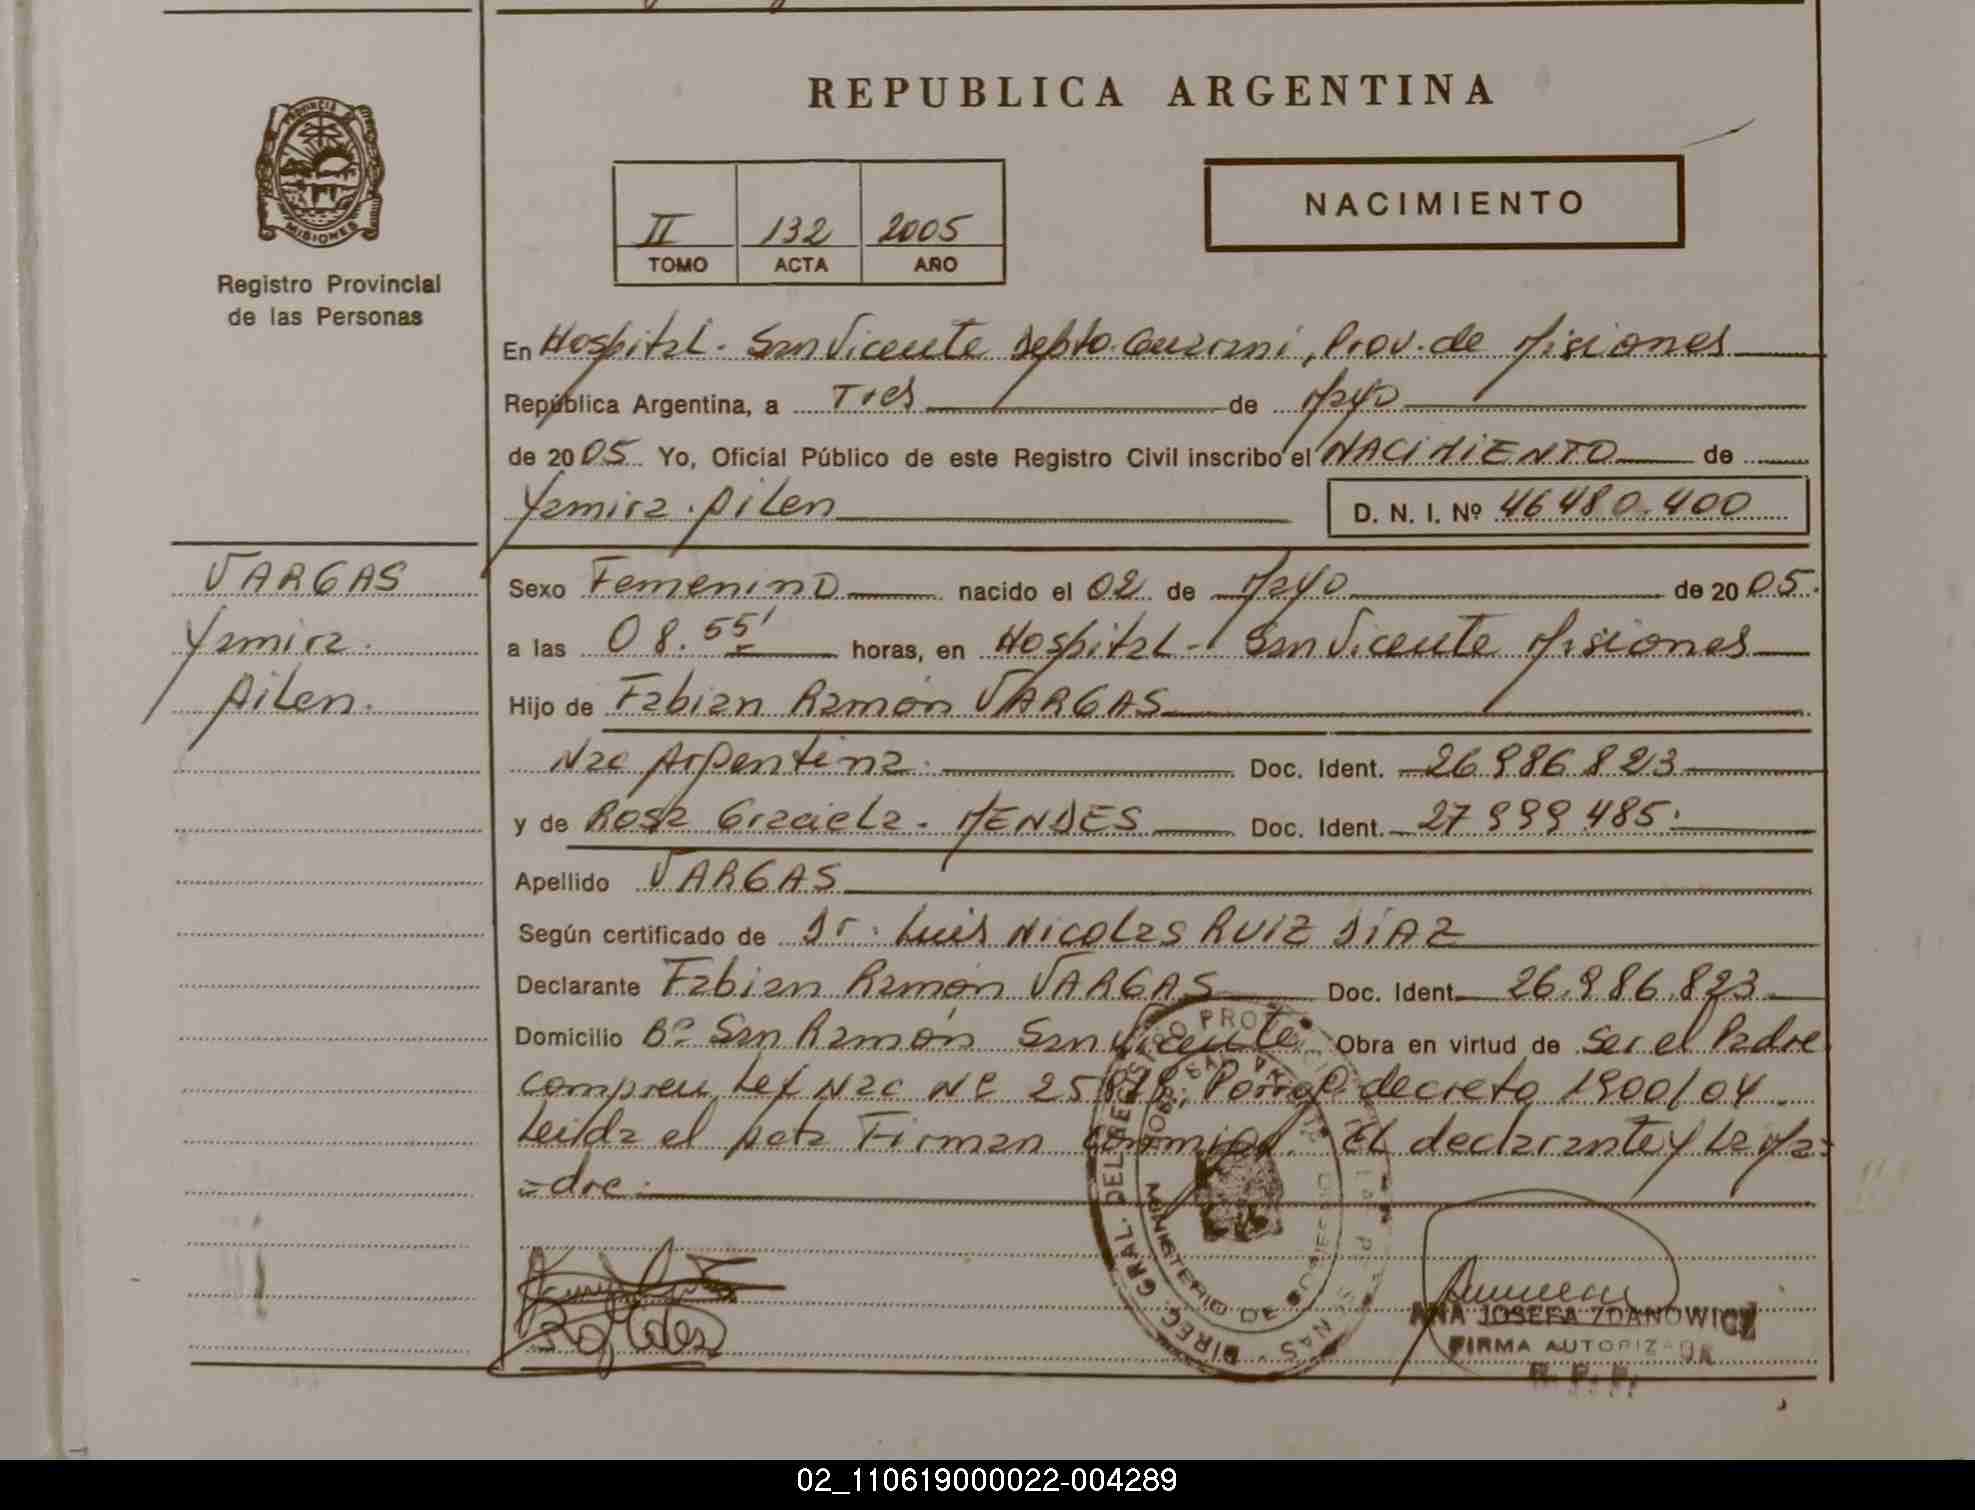 REPUBLICA ARGENTINA
PROVINCIA
MISIONES
Registro Provincial
de las Personas
II 132 2005
TOMO ACTA AÑO
NACIMIENTO
En Hospital - San Vicente Depto. Guarani, Prov. de Misiones
República Argentina, a Tres de Mayo
de 2005 Yo, Oficial Público de este Registro Civil inscribo el NACIMIENTO de
Yamira Ailen
D. N. I. Nº 46480.400
VARGAS
Yamira
Ailen.
Sexo Femenino nacido el 02 de Mayo de 2005.
a las 08.55' horas, en Hospital - San Vicente Misiones
Hijo de Fabian Ramón VARGAS
Nac Argentina. Doc. Ident. 26986823
y de Rosa Graciela - MENDES Doc. Ident. 27999485.
Apellido VARGAS
Según certificado de Dr. Luis Nicolas RUIZ DÍAZ
Declarante Fabian Ramón VARGAS Doc. Ident. 26.986.823
Domicilio Bº San Ramón San Vicente Obra en virtud de Ser el Padre
Ley Nac Nº decreto 1900/04.
Leida el Acta Firman Conmigo. El declarante y La Ma=
=dre.
DIREC. GRAL. DEL
MINISTERIO DE
ANA JOSEFA ZDANOWICZ
FIRMA AUTORIZADA
R. P. P.
02_110619000022-004289